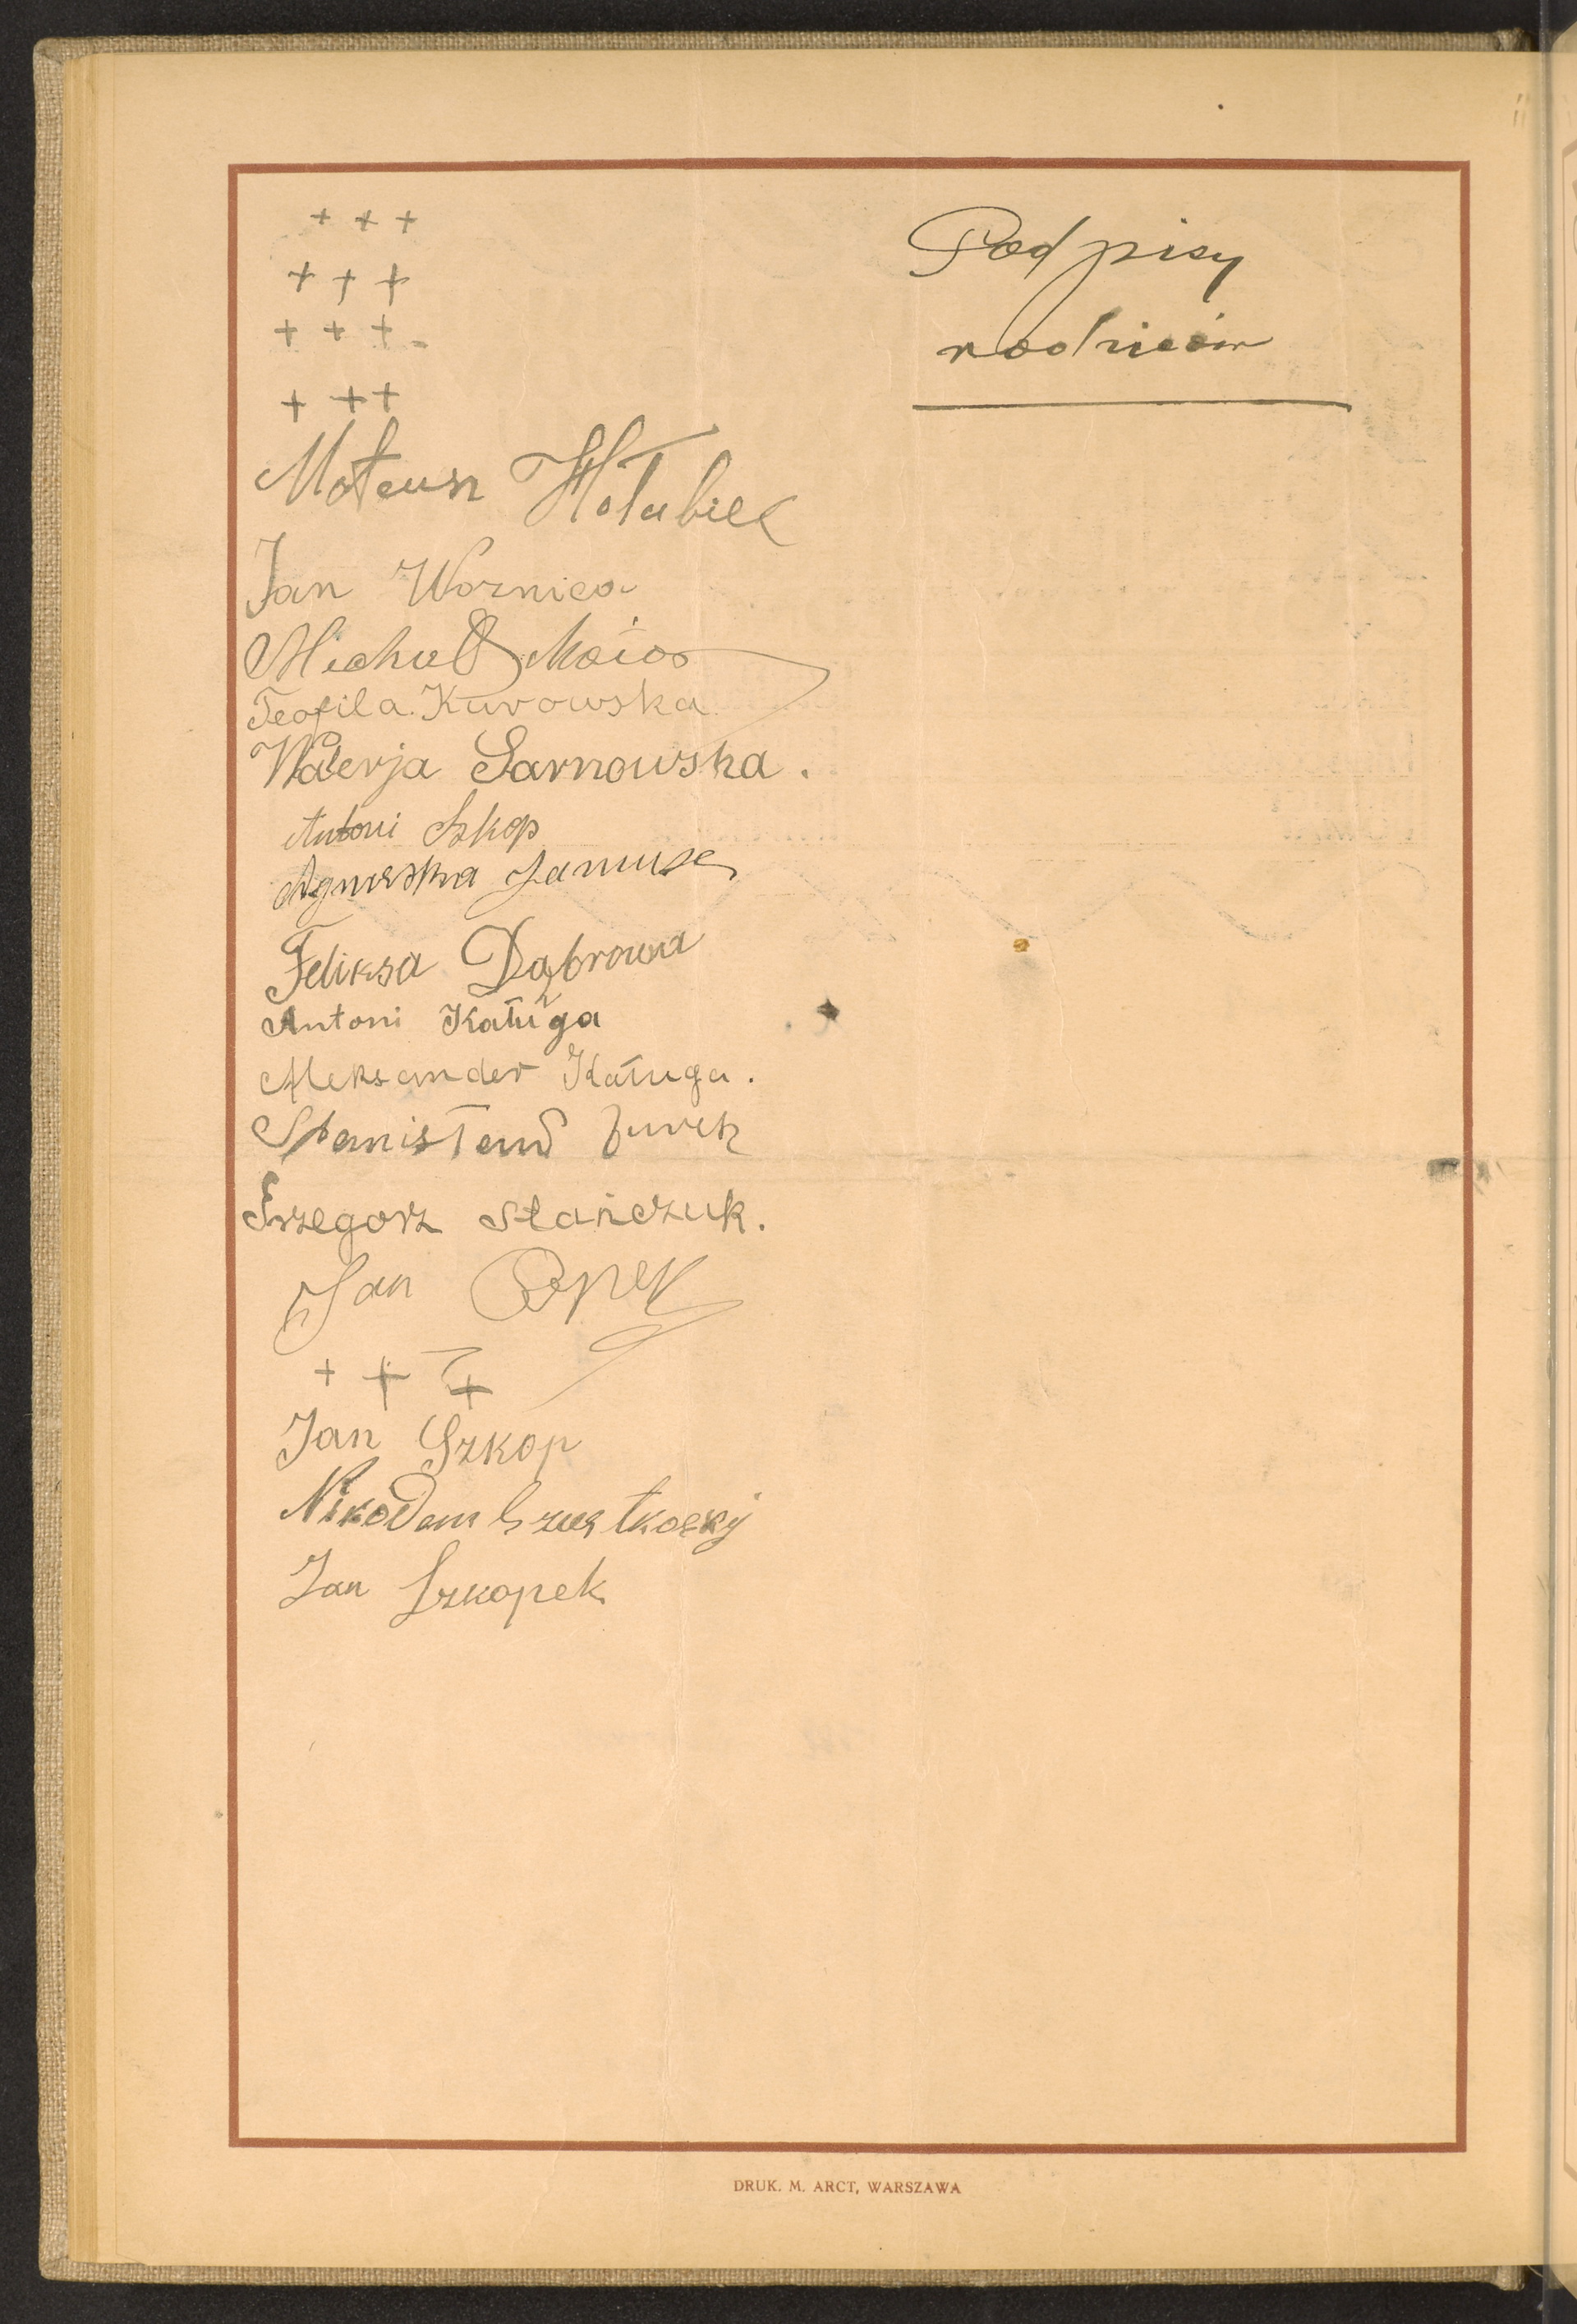 Podpisy
rodziców
+ + +
+ + +
+ + +
+ + +
Mateusz Hołubiec
Jan Woznica
Michał
Teofila Kurowska
Walerja Sarnowska.
Antoni Szkop
Agnieszka Janusz
Feliksa Dąbrowa
Antoni Kaługa
Aleksander Kaługa.
Stanisław Żurek
Grzegorz Stańczuk.
Jan
+ + +
Jan Szkop
Nikodem
Jan Szkopek
DRUK. M. ARCT, WARSZAWA